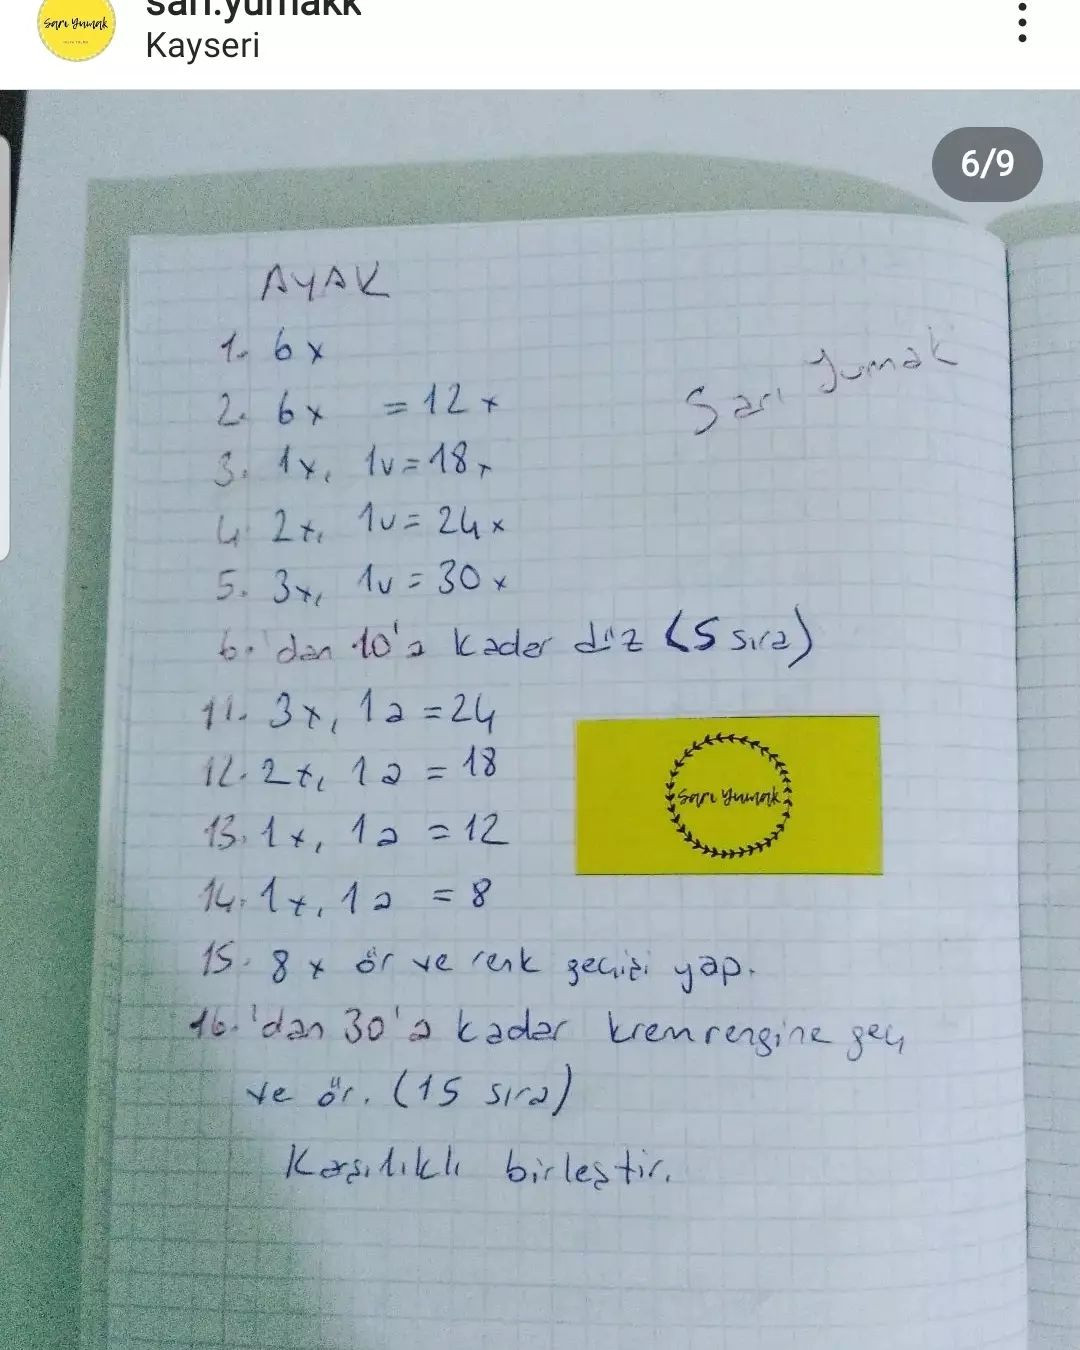 sari.yumakk
Kayseri
6/9
AYAK
Sarı Yumak
1. 6x
2. 6x = 12x
3. 1x, 1v = 18x
4. 2x, 1v = 24x
5. 3x, 1v = 30x
6.'dan 10'a kadar düz (5 sıra)
11. 3x, 1a = 24
12. 2x, 1a = 18
13. 1x, 1a = 12
14. 1x, 1a = 8
15. 8x ör ve renk geçişi yap.
16.'dan 30'a kadar krem rengine geç
ve ör. (15 sıra)
Karşılıklı birleştir.
Sarı Yumak
Sarı Yumak